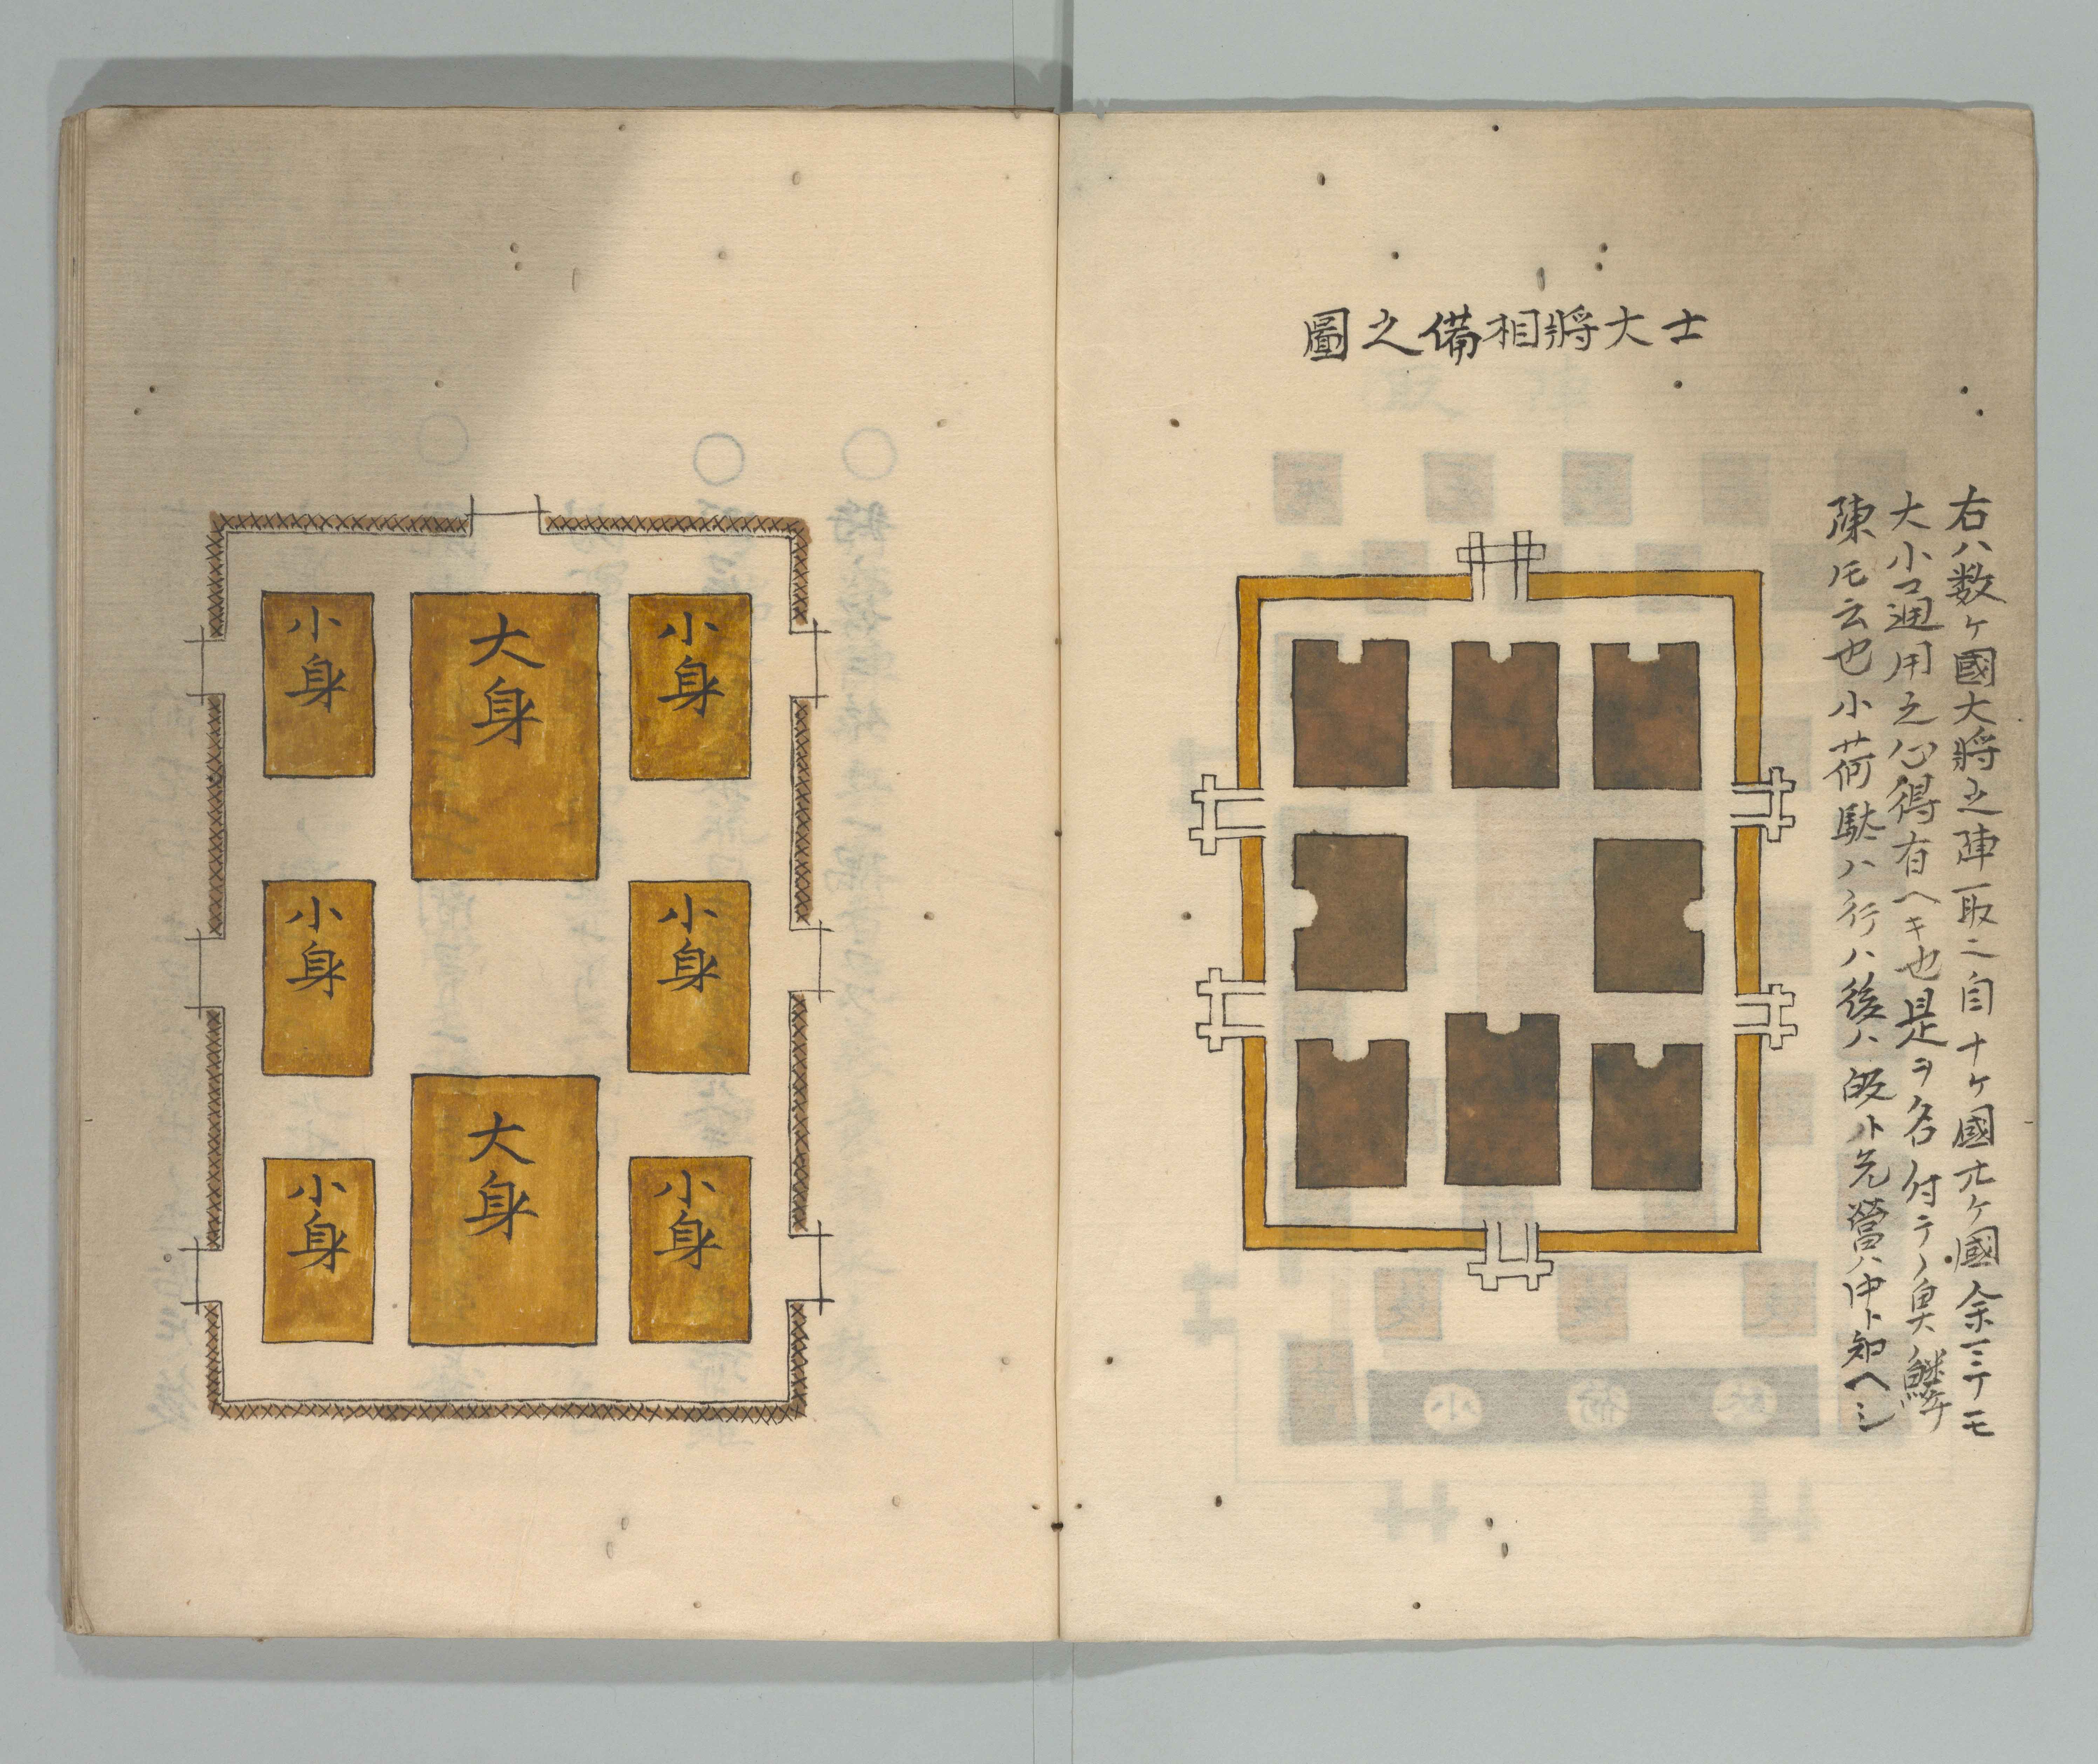 右ハ数ヶ國大將之陣取ニ自十ヶ國廿ヶ國余ニテモ
大小通用之心得有ヘキ也是ヲ名付テ魚鱗
陳ト云也小荷駄ハ行ハ後ハ ト先營ハ中ト知ヘシ
士大將相備之圖
小身
大身
小身
小身
小身
小身
大身
小身